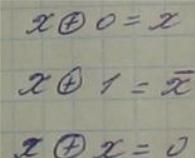 x ⊕ 0 = x
x ⊕ 1 = x̄
x ⊕ x = 0